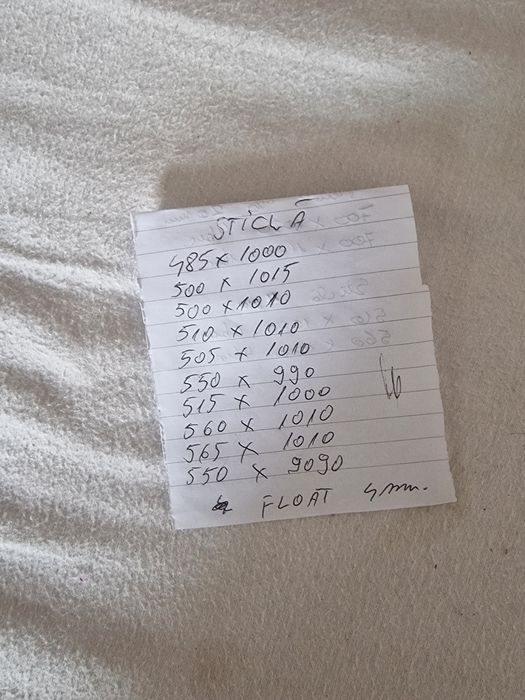 STICLĂ
485 x 1000
500 x 1015
500 x 1010
510 x 1010
505 x 1010
550 x 990
515 x 1000
560 x 1010
565 x 1010
550 x 9090
FLOAT 4mm.